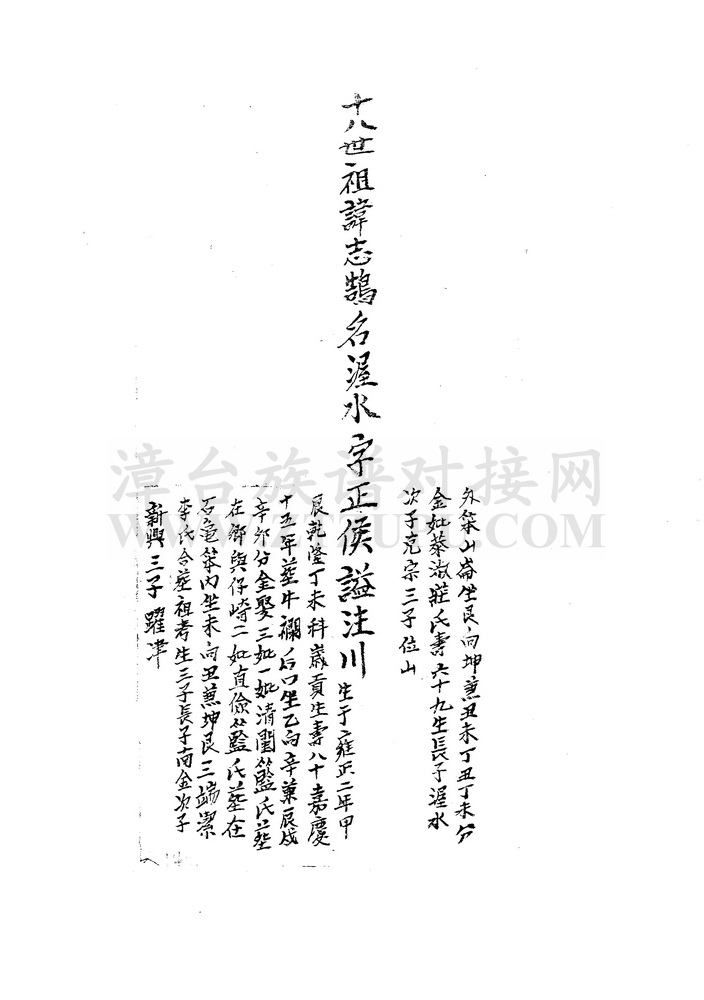 外寨山崙坐艮向坤兼丑未丁丑丁未分
金妣恭淑莊氏壽六十九生長子渥水
次子克宗三子位山
十八世祖諱志鵠名渥水字正侯謚注川
生于雍正二年甲
辰乾隆丁未科歲貢生壽八十嘉慶
十五年葬牛欄后口坐乙向辛兼辰戌
辛卯分金娶三妣一妣清閨藍氏葬
在鄉與仔崎二妣直儉藍氏葬在
石竜寨内坐未向丑兼坤艮三端潔
李氏合葬祖考生三子長子南金次子
新興三子躍津
漳台族谱对接网